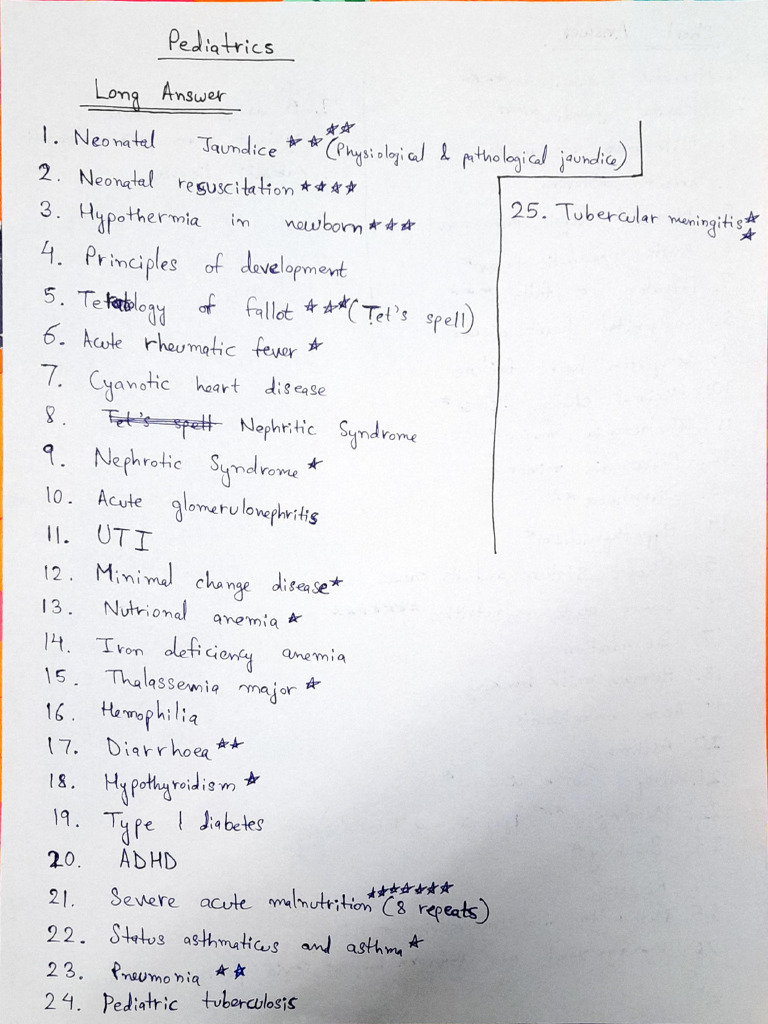 Pediatrics
Long Answer
1. Neonatal Jaundice ☆☆☆☆ (Physiological & pathological jaundice)
2. Neonatal resuscitation ☆☆☆☆
3. Hypothermia in newborn ☆☆☆
4. Principles of development
5. Tetralogy of fallot ☆☆☆ (Tet's spell)
6. Acute rheumatic fever ☆
7. Cyanotic heart disease
8. Tet's spell Nephritic Syndrome
9. Nephrotic Syndrome ☆
10. Acute glomerulonephritis
11. UTI
12. Minimal change disease ☆
13. Nutrional anemia ☆
14. Iron deficiency anemia
15. Thalassemia major ☆
16. Hemophilia
17. Diarrhoea ☆☆
18. Hypothyroidism ☆
19. Type 1 diabetes
20. ADHD
21. Severe acute malnutrition ☆☆☆☆☆☆☆ (8 repeats)
22. Status asthmaticus and asthma ☆
23. Pneumonia ☆☆
24. Pediatric tuberculosis
25. Tubercular meningitis ☆☆